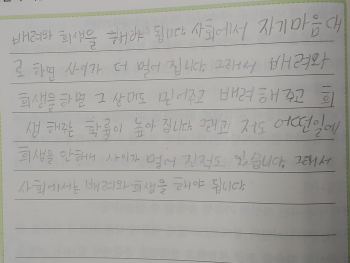 배려와 희생을 해야 됩니다 사회에서 자기마음대
로 하면 사이가 더 멀어 집니다. 그래서 배려와
희생을 하면 그 상대도 믿어주고 배려해주고 희
생 해주는 확률이 높아 집니다. 그리고 저도 어떤일에
희생을 안해서 사이가 멀어 진적도 있습니다. 그래서
사회에서는 배려와 희생을 해야 됩니다.